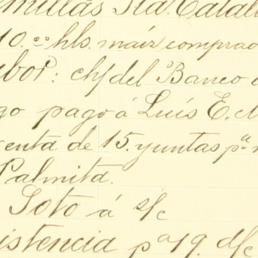 millas Sta. Catal
10.00 hls. maíz comprad
abor: ch/ del Banco
go pagó á Luis E. M
enta de 15. yuntas pª
Palmita.
Soto á s/c
istencia pª 19. d/c